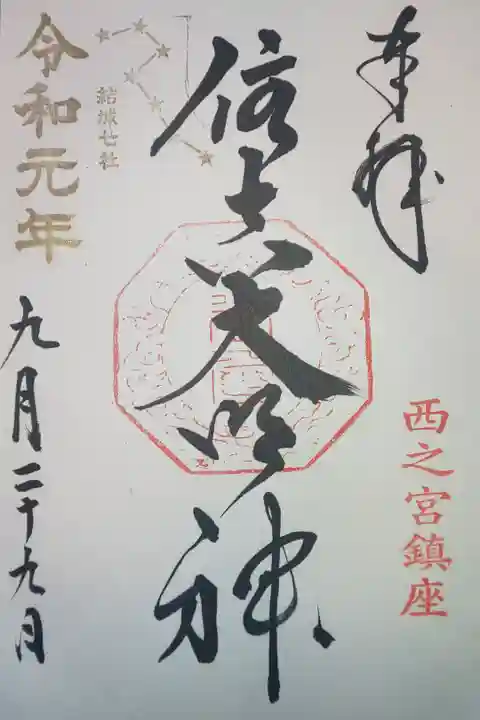 奉拝
西之宮鎮座
住吉大明神
結城七社
令和元年
九月二十九日